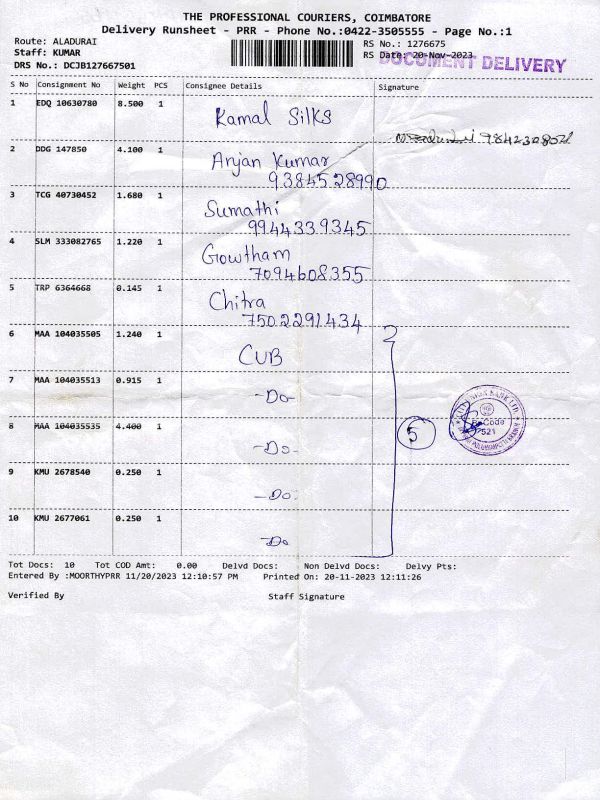 THE PROFESSIONAL COURIERS, COIMBATORE
Delivery Runsheet - PRR - Phone No.:0422-3505555 - Page No.:1
Route: ALADURAI
Staff: KUMAR
DRS No.: DCJB127667501
RS No.: 1276675
RS Date: 20-Nov-2023
DOCUMENT DELIVERY
S No Consignment No Weight PCS Consignee Details Signature
1 EDQ 10630780 8.500 1 Kamal Silks
9842308021
2 DDG 147850 4.100 1 Anjan Kumar
9384528990
3 TCG 40730452 1.680 1 Sumathi
9944339345
4 SLM 333082765 1.220 1 Gowtham
7094608355
5 TRP 6364668 0.145 1 Chitra
7502291434
6 MAA 104035505 1.240 1 CUB
7 MAA 104035513 0.915 1 -Do-
8 MAA 104035535 4.400 1 -Do-
5
CITY UNION BANK LTD
Code
521
9 KMU 2678540 0.250 1 -Do-
10 KMU 2677061 0.250 1 -Do-
Tot Docs: 10 Tot COD Amt: 0.00 Delvd Docs: Non Delvd Docs: Delvy Pts:
Entered By :MOORTHYPRR 11/20/2023 12:10:57 PM Printed On: 20-11-2023 12:11:26
Verified By Staff Signature